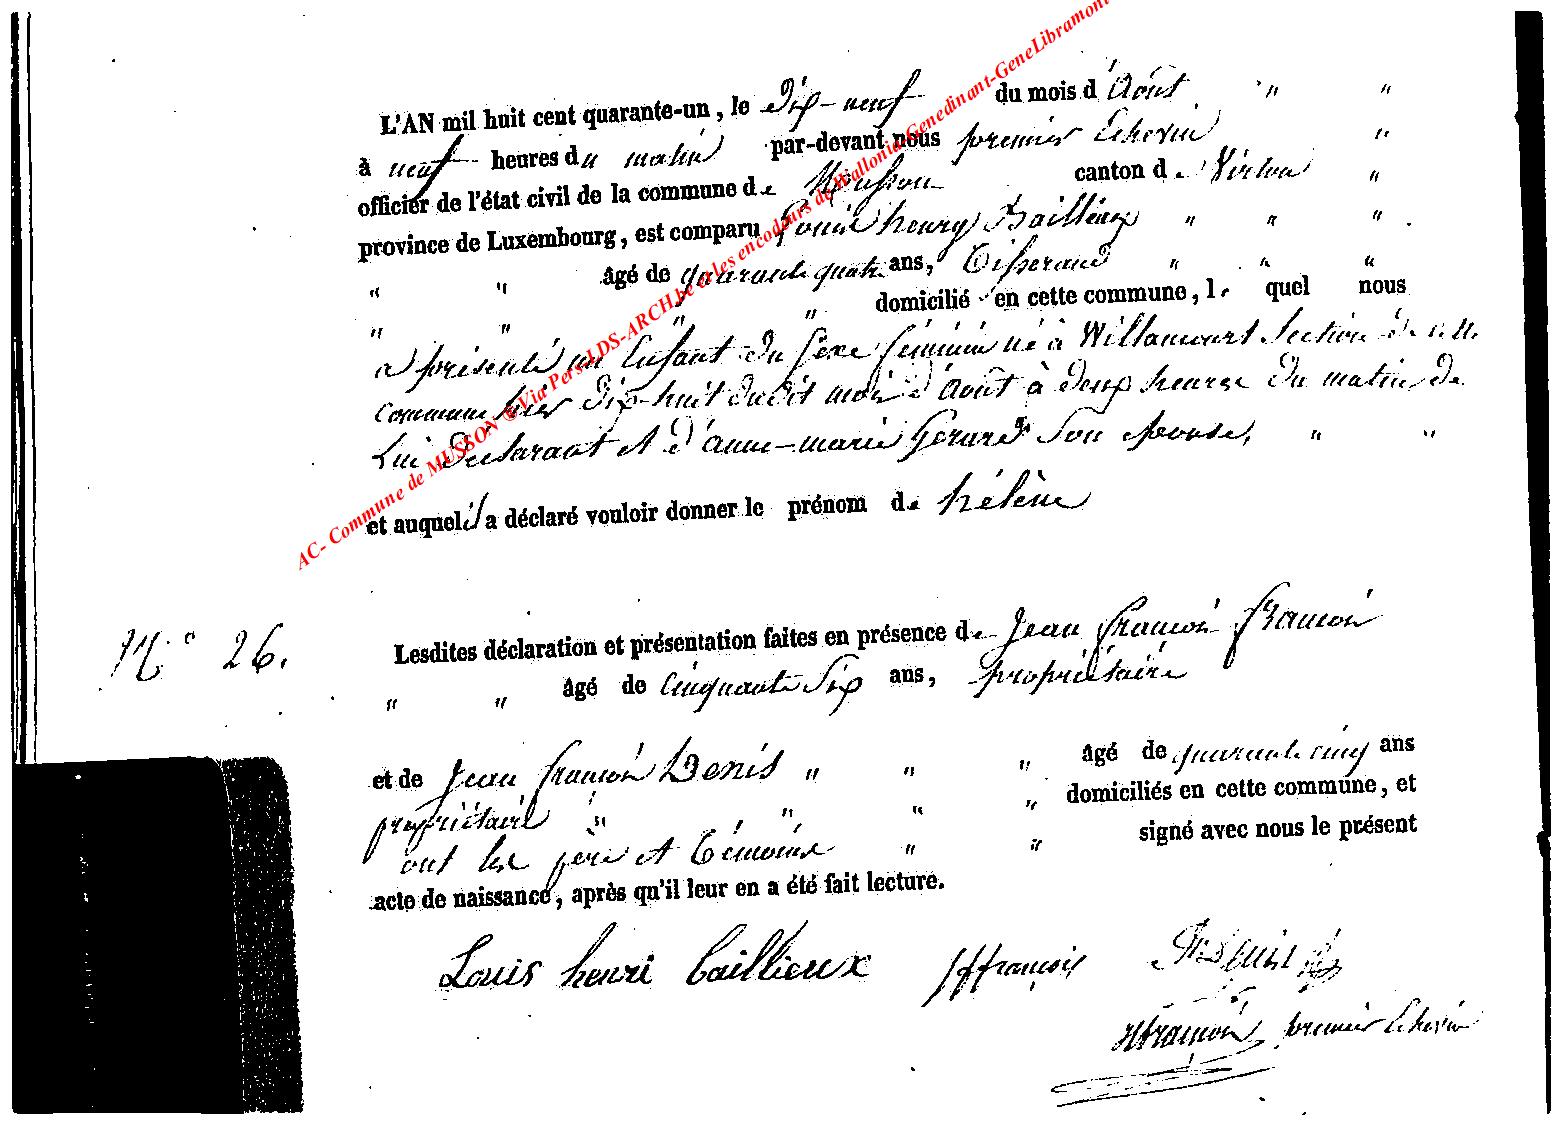 L'AN mil huit cent quarante-un, le Dix-neuf du mois d'Août " "
à neuf heures du matin par-devant nous premier Echevin "
officier de l'état civil de la commune de Musson canton de Virton "
province de Luxembourg, est comparu Louis henry Bailleux " " "
" " âgé de quarante quatre ans, Tisserand " " "
" " " " domicilié en cette commune, lequel nous
a présenté un Enfant du Sexe féminin né à Willancourt Section de cette
commune hier dix-huit dudit mois d'août à deux heures du matin de
Lui Déclarant et d'anne-marie Gerard Son épouse, " "
et auquel il a déclaré vouloir donner le prénom de hélène
N° 26.
Lesdites déclaration et présentation faites en présence de Jean françois françois
" " âgé de Cinquante Six ans, propriétaire
et de Jean françois Denis " " " âgé de quarante cinq ans
propriétaire " " " " domiciliés en cette commune, et
ont les père et Témoins " " signé avec nous le présent
acte de naissance, après qu'il leur en a été fait lecture.
Louis henri bailleux JffrançoiS Jf Denis
françois premier Echevin
AC- Commune de MUSSON ® Via Pers-LDS-ARCH.be et les encodeurs de Wallonia-Genedinant-GeneLibramont